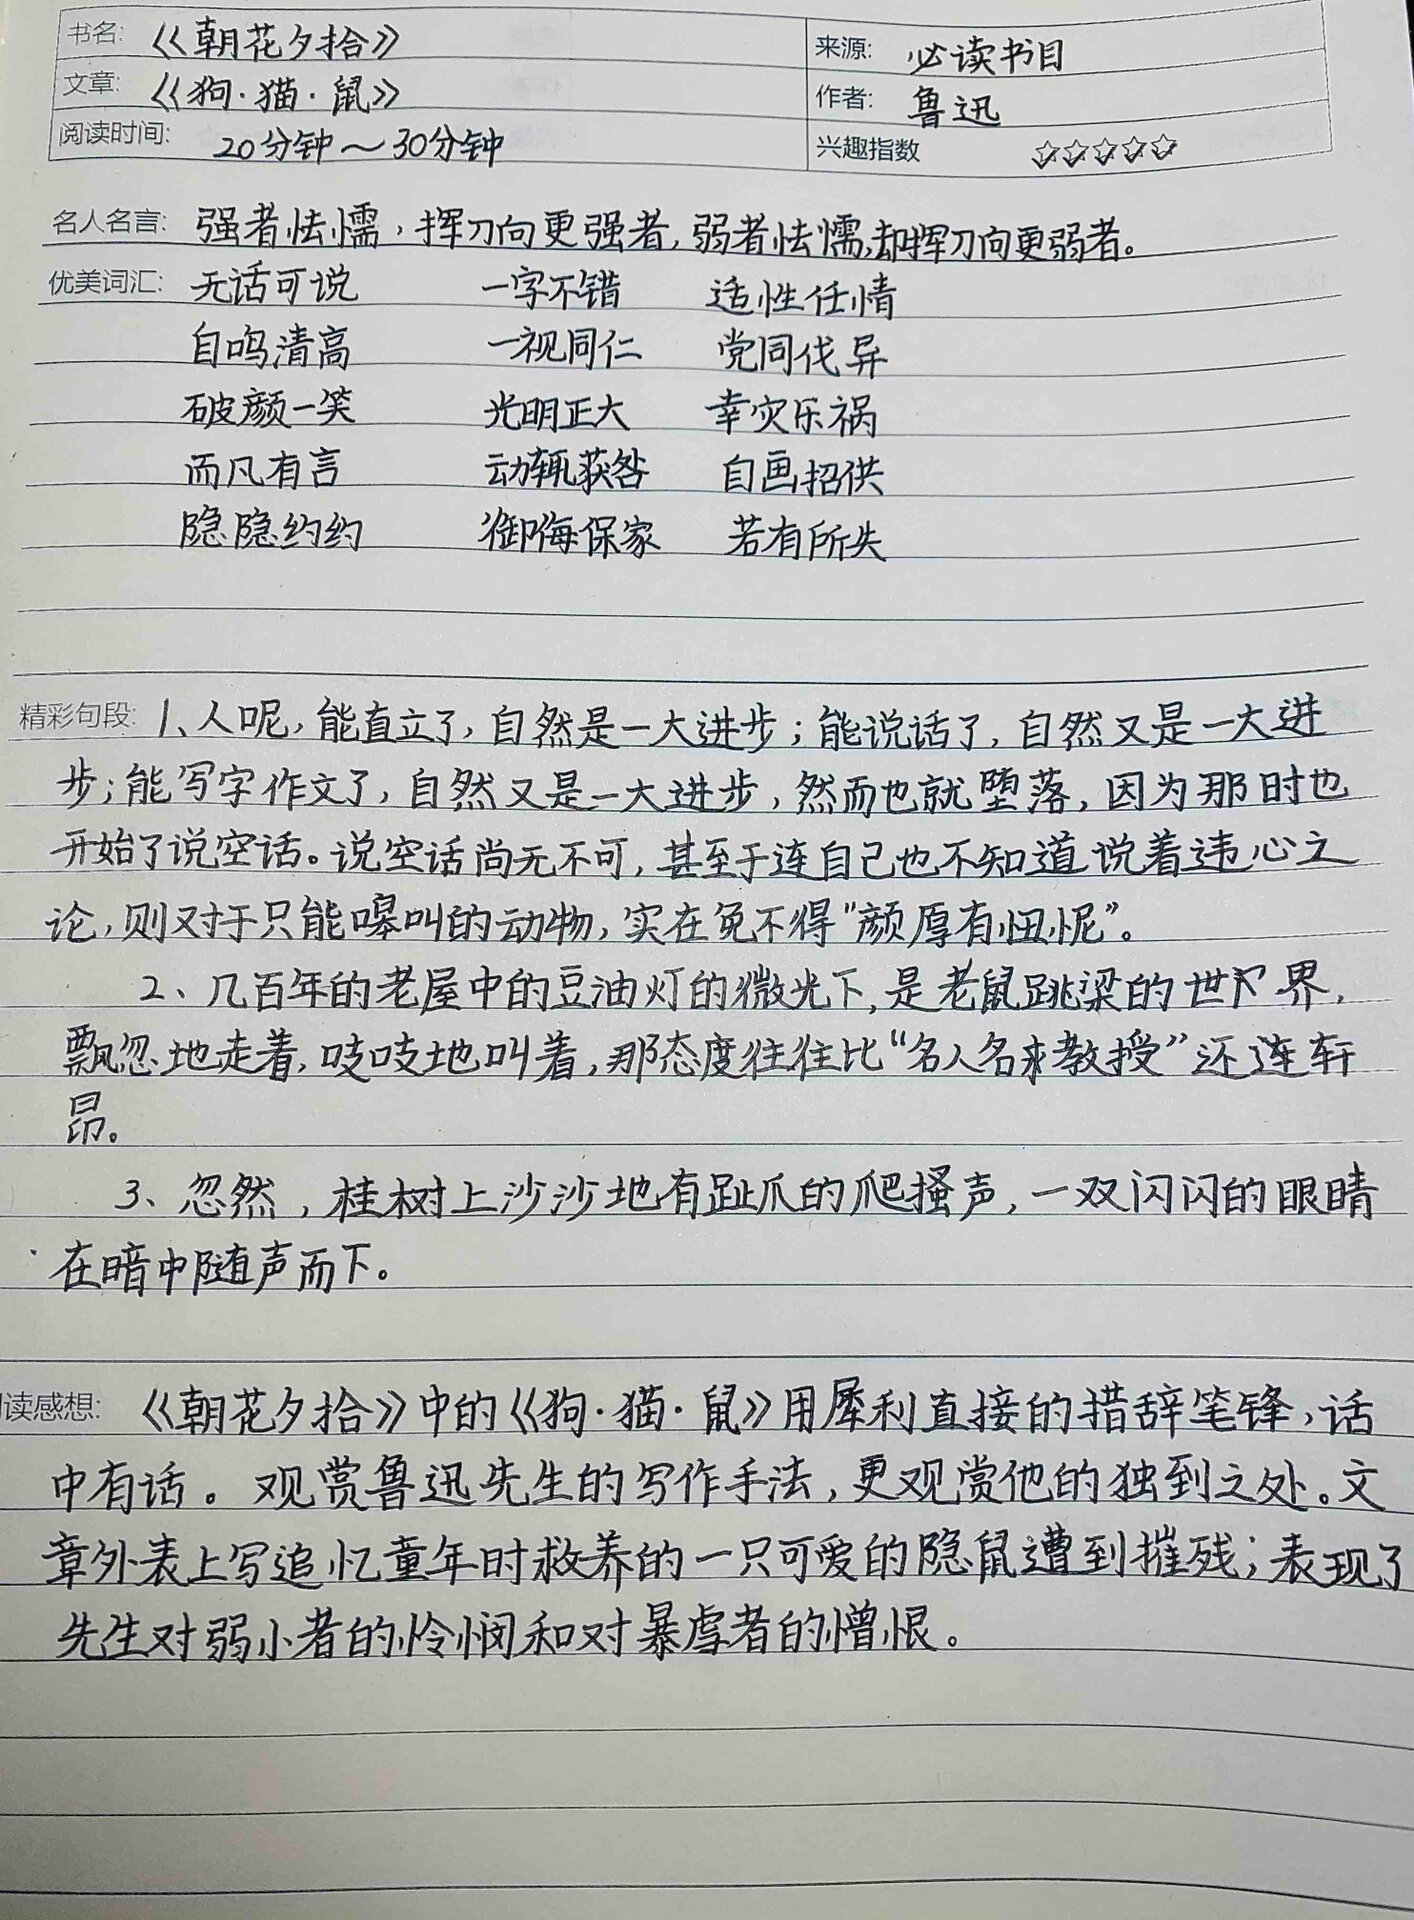 书名: 《朝花夕拾》 来源: 必读书目
文章: 《狗·猫·鼠》 作者: 鲁迅
阅读时间: 20分钟～30分钟 兴趣指数 ☆☆☆☆☆
名人名言: 强者怯懦，挥刀向更强者，弱者怯懦，却挥刀向更弱者。
优美词汇: 无话可说 一字不错 适性任情
自鸣清高 一视同仁 党同伐异
破颜一笑 光明正大 幸灾乐祸
而凡有言 动辄获咎 自画招供
隐隐约约 御侮保家 若有所失
精彩句段: 1、人呢，能直立了，自然是一大进步；能说话了，自然又是一大进
步；能写字作文了，自然又是一大进步，然而也就堕落，因为那时也
开始了说空话。说空话尚无不可，甚至于连自己也不知道说着违心之
论，则对于只能嗥叫的动物，实在免不得“颜厚有忸怩”。
2、几百年的老屋中的豆油灯的微光下，是老鼠跳梁的世界，
飘忽地走着，吱吱地叫着，那态度往往比“名人名来教授”还连轩
昂。
3、忽然，桂树上沙沙地有趾爪的爬搔声，一双闪闪的眼睛
在暗中随声而下。
读感想: 《朝花夕拾》中的《狗·猫·鼠》用犀利直接的措辞笔锋，话
中有话。观赏鲁迅先生的写作手法，更观赏他的独到之处。文
章外表上写追忆童年时救养的一只可爱的隐鼠遭到摧残；表现了
先生对弱小者的怜悯和对暴虐者的憎恨。